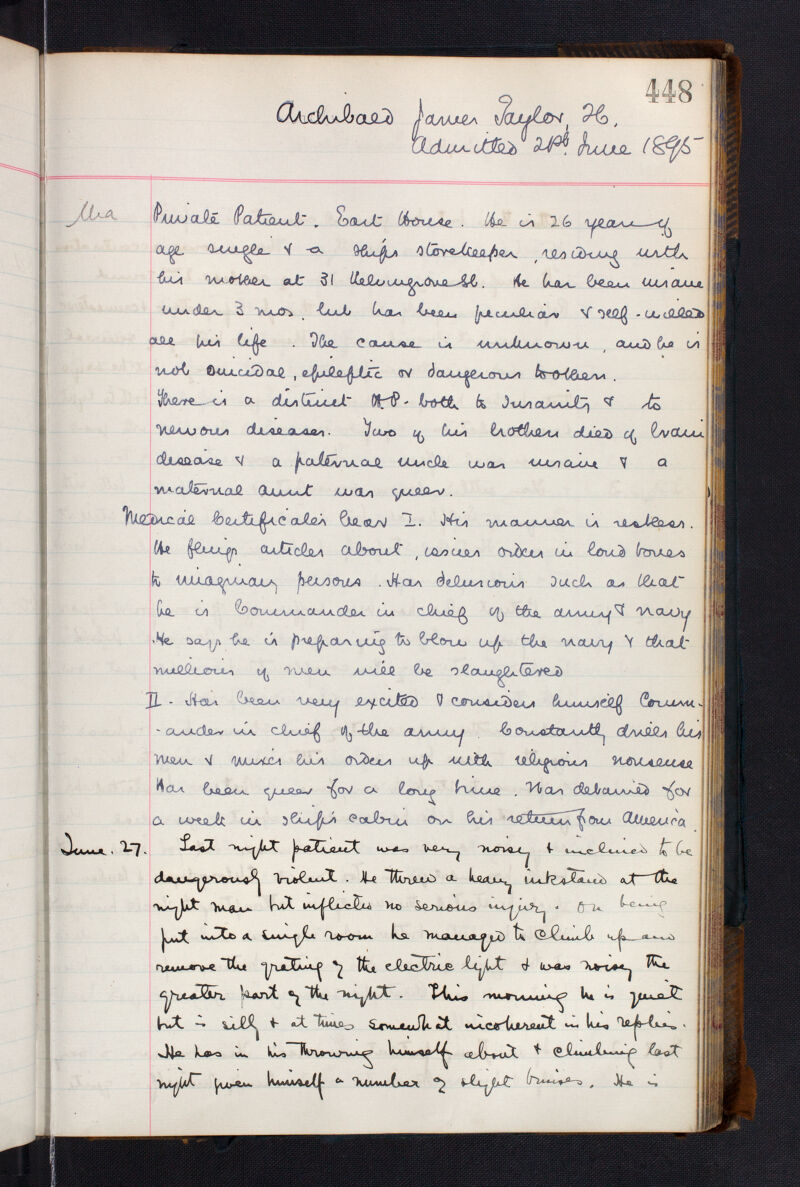 448
Archibald James Taylor, 26.
Admitted 21st June 1895
Private Patient. East House. He is 26 years of
age single & a ships storekeeper, residing with
his mother at 31 Kelvingrove St. He has been insane
under 3 mos, but has been peculiar & self-willed
all his life. The cause is unknown, and he is
not suicidal, epileptic or dangerous to others.
There is a distinct H.P. both to Insanity & to
nervous diseases. Two of his brothers died of brain
disease & a paternal uncle was insane & a
maternal aunt was queer.
Medical Certificates bear I. His manner is restless.
He flings articles about, issues orders in loud tones
to imaginary persons. Has delusions such as that
he is Commander in chief of the army & navy
He says he is preparing to blow up the navy & that
millions of men will be slaughtered
II. Has been very excited & considers himself Comm-
-ander in chief of the army. Constantly drills his
men & mixes his orders up with religious nonsense
Has been queer for a long time. Was detained for
a week in ship's cabin on his return from America.
June. 27. Last night patient was very noisy & inclined to be
dangerously violent. He threw a heavy inkstand at the
night man but inflicted no serious injury. On being
put into a single room he managed to climb up and
remove the grating of the electric light & was noisy the
greater part of the night. This morning he is quiet
but is silly & at times somewhat incoherent in his replies.
He has in his throwing himself about & climbing last
night given himself a number of slight bruises. He is